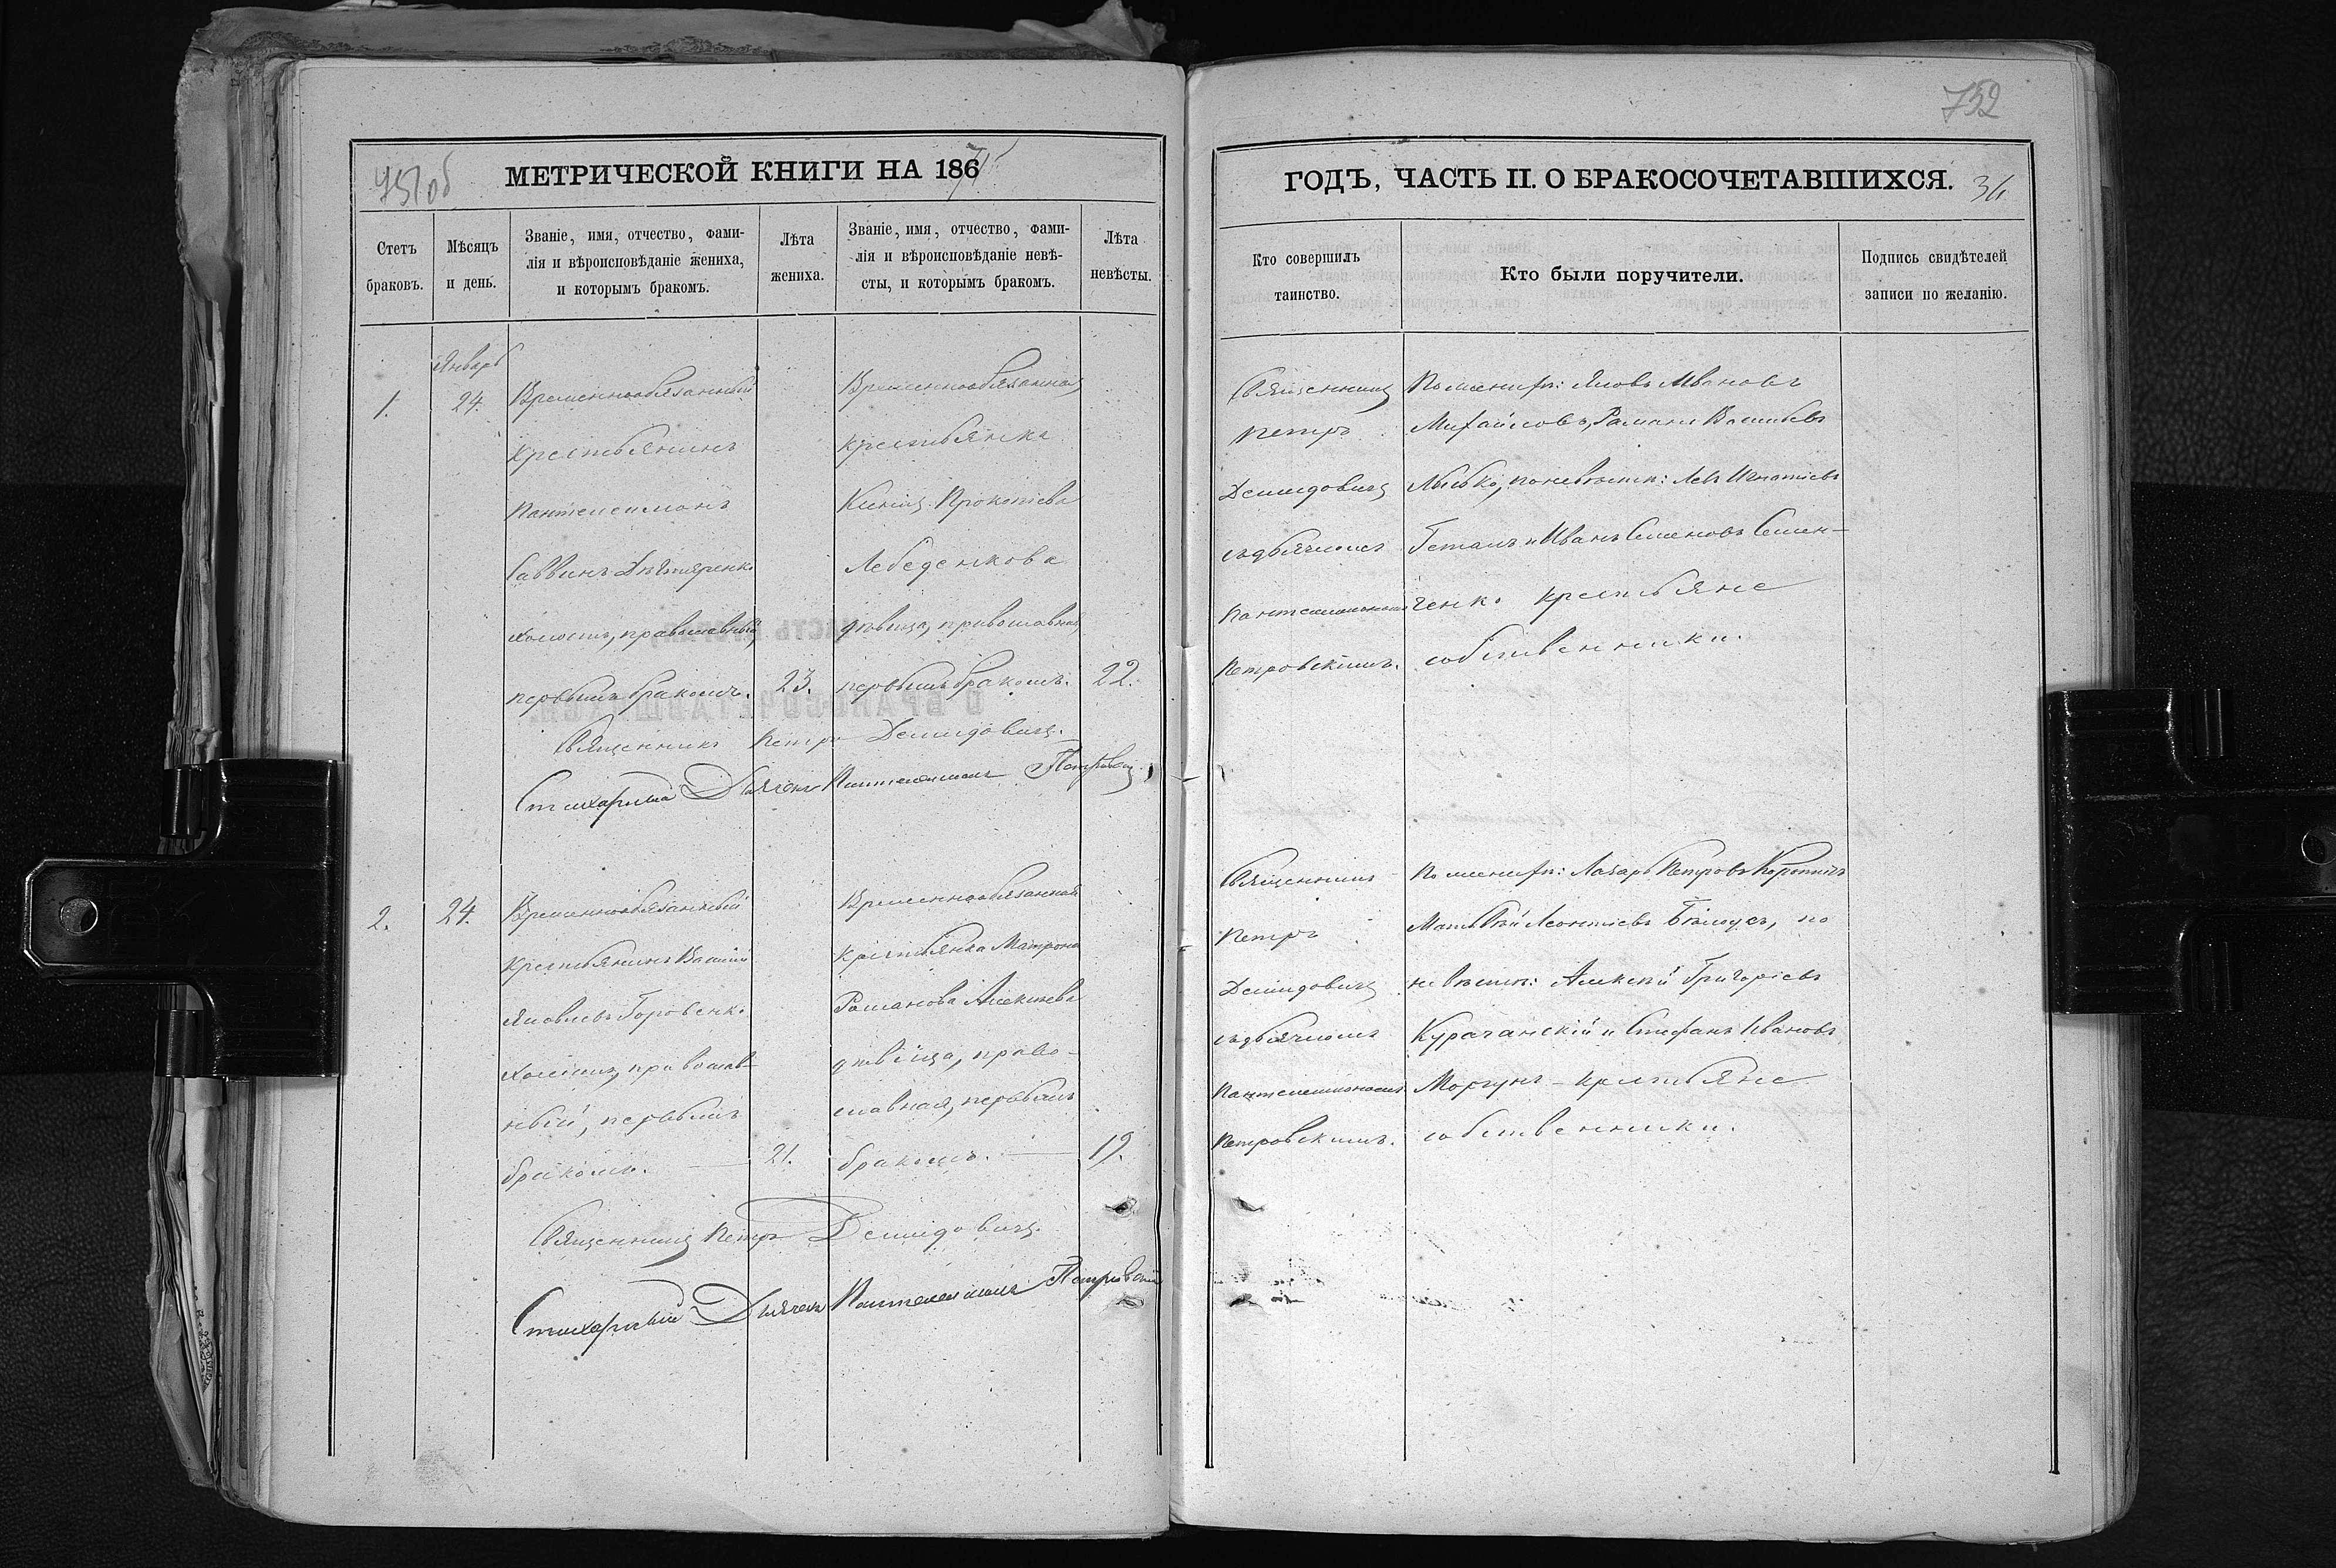 751об
МЕТРИЧЕСКОЙ КНИГИ НА 186
Счетъ браковъ.
Мѣсяцъ и день.
Званіе, имя, отчество, фами-
лія и вѣроисповѣданіе жениха,
и которымъ бракомъ.
Лѣта жениха.
Званіе, имя, отчество, фами-
лія и вѣроисповѣданіе невѣ-
сты, и которымъ бракомъ.
Лѣта невѣсты.
Январь
1.
24.
Временнообязанный
крестьянинъ
Пантелеимонъ
Саввинъ
холостъ, православный,
первымъ бракомъ.
23.
Временнообязанная
крестьянка
Прокопіева
Лебеденкова
дѣвица, православная,
первымъ бракомъ.
22.
Священникъ Петръ Демидовичъ.
Стихарный Дьячекъ Пантелеимонъ Петровскій
2.
24.
Временнообязанный
крестьянинъ Василій
Яковлевъ Горовенко
холостъ, православ-
ный, первымъ
бракомъ.
21.
Временнообязанная
крестьянка Матрона
Романова Алексѣева
дѣвица, право-
славная, первымъ
бракомъ.
19.
Священникъ Петръ Демидовичъ.
Стихарный Дьячекъ Пантелеимонъ Петровскій
752
ГОДЪ, ЧАСТЬ II. О БРАКОСОЧЕТАВШИХСЯ.
34
Кто совершилъ
таинство.
Кто были поручители.
Подпись свидѣтелей
записи по желанію.
Священникъ
Петръ
Демидовичъ
съ дьячкомъ
Пантелеимономъ
Петровскимъ.
По женихѣ: Яковъ Ивановъ
Михайловъ, Романъ Васильевъ
по невѣстѣ: Левъ Игнатіевъ
и Иванъ Семеновъ Семен-
ченко крестьяне
собственники.
Священникъ
Петръ
Демидовичъ
съ дьячкомъ
Пантелеимономъ
Петровскимъ.
По женихѣ: Лазарь Петровъ
Матвѣй Леонтіевъ Бѣлоусъ, по
невѣстѣ: Алексѣй Григоріевъ
Курачанскій и Стефанъ Ивановъ
Моргунъ - крестьяне
собственники.